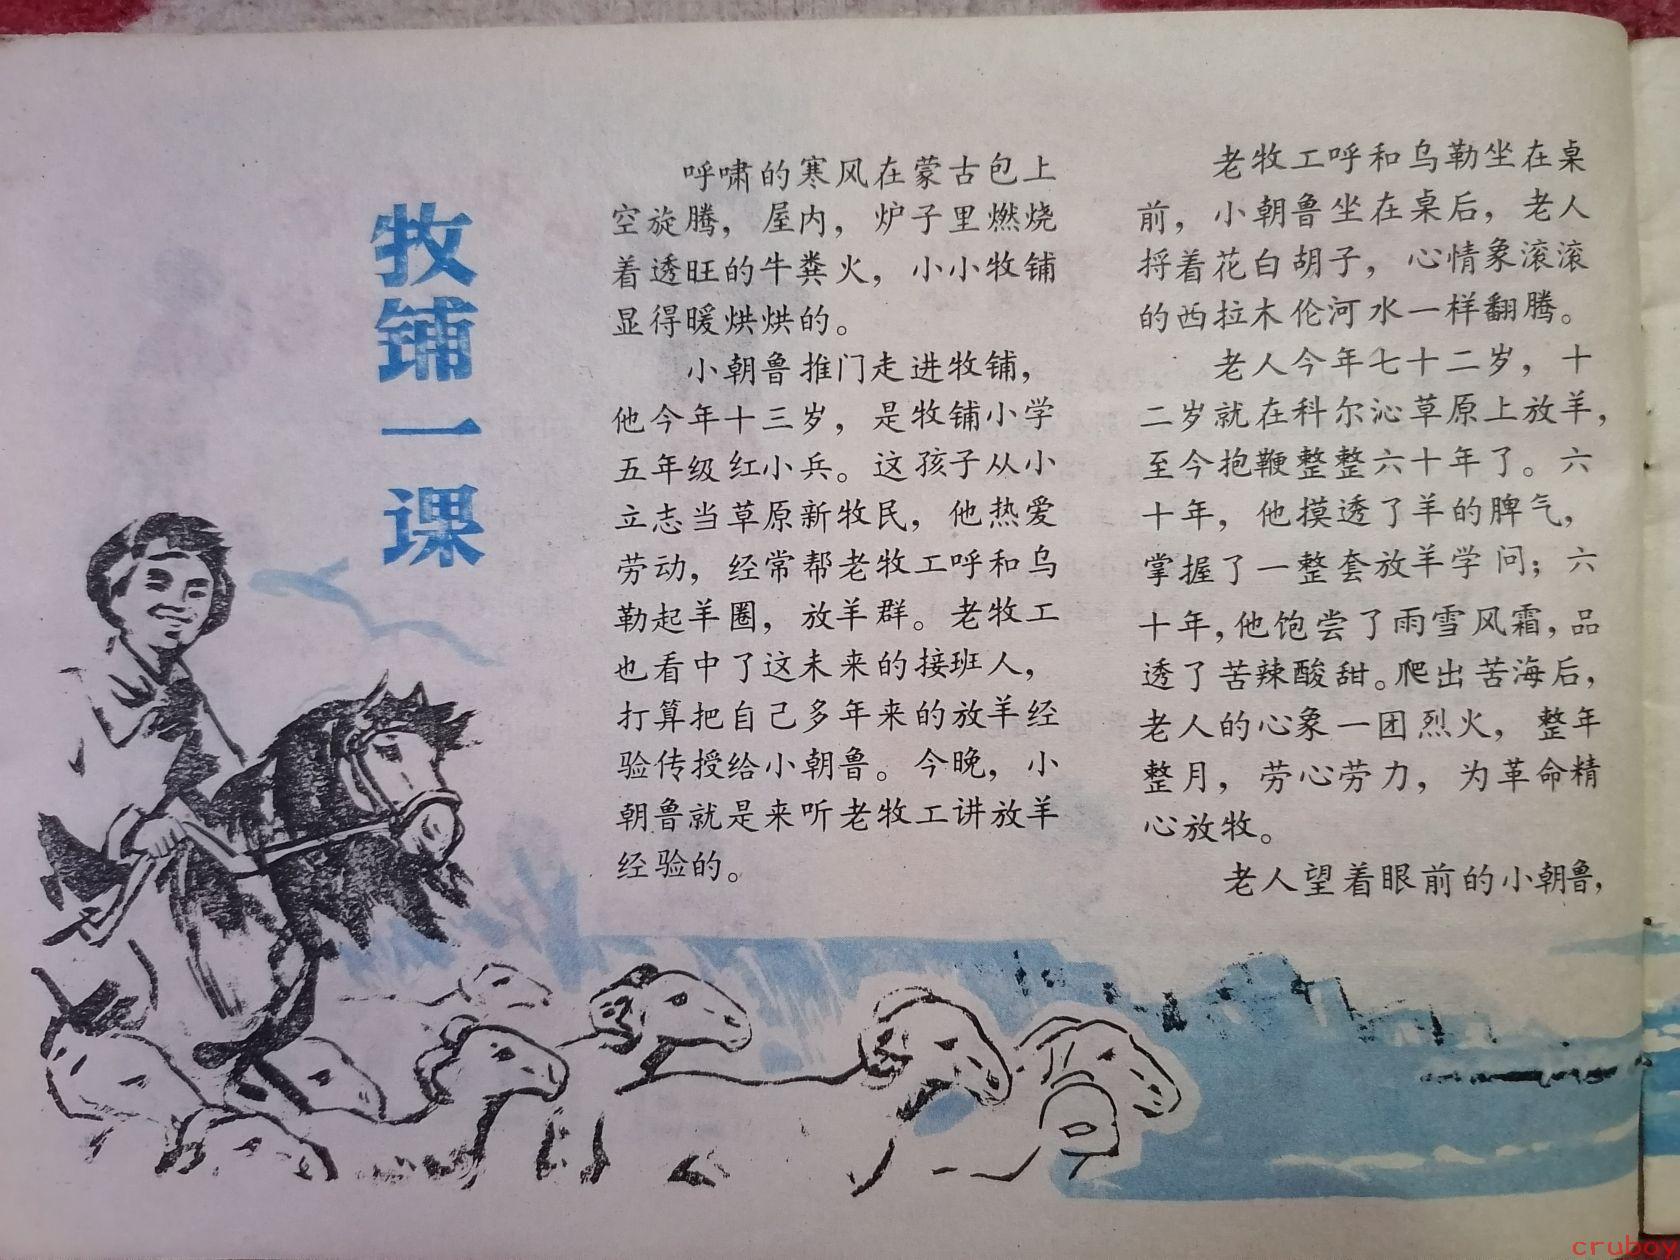 牧铺一课
呼啸的寒风在蒙古包上
空旋腾，屋内，炉子里燃烧
着透旺的牛粪火，小小牧铺
显得暖烘烘的。
小朝鲁推门走进牧铺，
他今年十三岁，是牧铺小学
五年级红小兵。这孩子从小
立志当草原新牧民，他热爱
劳动，经常帮老牧工呼和乌
勒起羊圈，放羊群。老牧工
也看中了这未来的接班人，
打算把自己多年来的放羊经
验传授给小朝鲁。今晚，小
朝鲁就是来听老牧工讲放羊
经验的。
老牧工呼和乌勒坐在桌
前，小朝鲁坐在桌后，老人
捋着花白胡子，心情象滚滚
的西拉木伦河水一样翻腾。
老人今年七十二岁，十
二岁就在科尔沁草原上放羊，
至今抱鞭整整六十年了。六
十年，他摸透了羊的脾气，
掌握了一整套放羊学问；六
十年，他饱尝了雨雪风霜，品
透了苦辣酸甜。爬出苦海后，
老人的心象一团烈火，整年
整月，劳心劳力，为革命精
心放牧。
老人望着眼前的小朝鲁，
cruboy